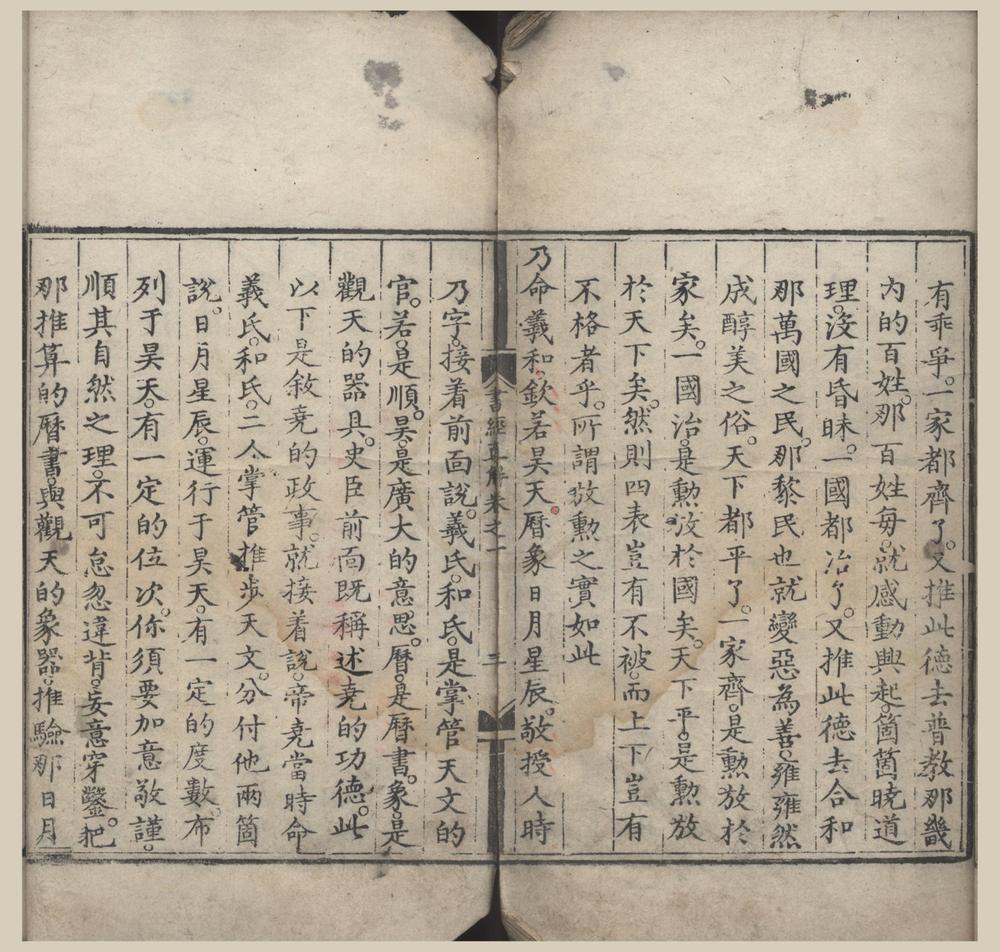 有乖爭。一家都齊了。又推此德去普教那畿
內的百姓。那百姓每。就感動興起。箇箇曉道
理。沒有昏昧。一國都治了。又推此德去合和
那萬國之民。那黎民也就變惡為善。雍雍然
成醇美之俗。天下都平了。一家齊。是勲放於
家矣。一國治。是勲放於國矣。天下平。是勲放
於天下矣。然則四表豈有不被。而上下豈有
不格者乎。所謂放勲之實如此
乃命羲和。欽若昊天。曆象日月星辰。敬授人時
書經直解卷之一 三
乃字。接着前面說。羲氏。和氏。是掌管天文的
官。若。是順。昊。是廣大的意思。曆。是曆書。象。是
觀天的器具。史臣前面既稱述堯的功德。此
以下是敘堯的政事。就接着說。帝堯當時命
羲氏。和氏。二人掌管推步天文。分付他兩箇
說。日月星辰。運行于昊天。有一定的度數。布
列于昊天。有一定的位次。你須要加意敬謹。
順其自然之理。不可怠忽違背。妄意穿鑿。把
那推算的曆書。與觀天的象器。推驗那日月